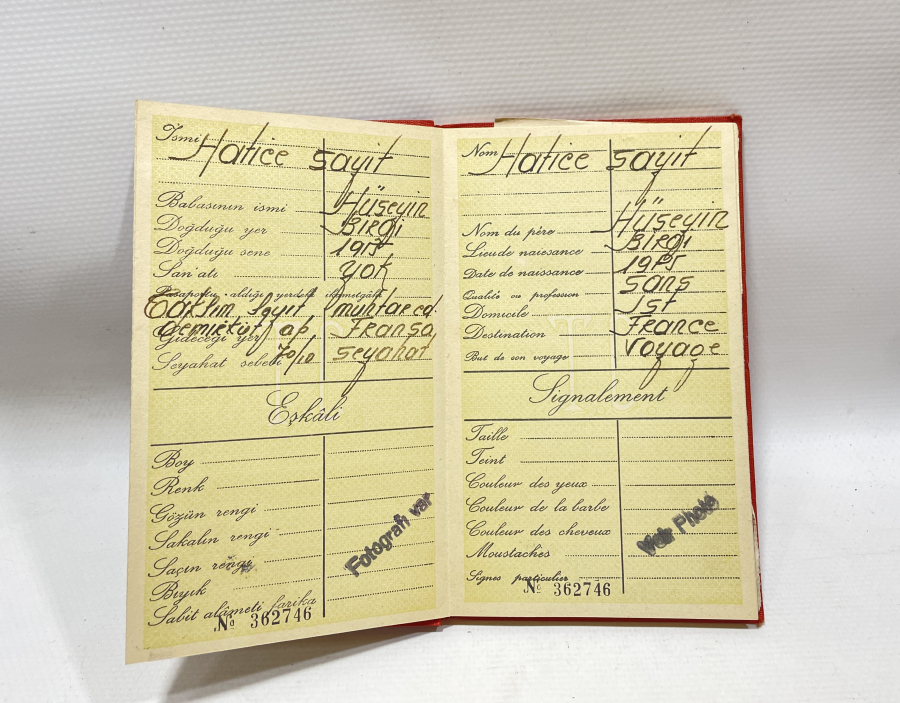 İsmi Hatice Sayit
Babasının ismi Hüseyin
Doğduğu yer Birgi
Doğduğu sene 1915
San'atı yok
Pasaportu aldığı yerdeki ikametgâhı
Taksim, Sayit
ap.
Gideceği yer Fransa
Seyahat sebebi 70/10 seyahat
Eşkâli
Boy
Renk
Gözün rengi
Sakalın rengi
Saçın rengi
Bıyık
Sabit alâmeti farika
Fotoğrafı var
№ 362746
Nom Hatice Sayit
Nom du père Hüseyin
Lieu de naissance Birgi
Date de naissance
Qualité ou profession sans
Domicile Ist
Destination France
But de son voyage Voyage
Signalement
Taille
Teint
Couleur des yeux
Couleur de la barbe
Couleur des cheveux
Moustaches
Signes particulier
Photo
№ 362746